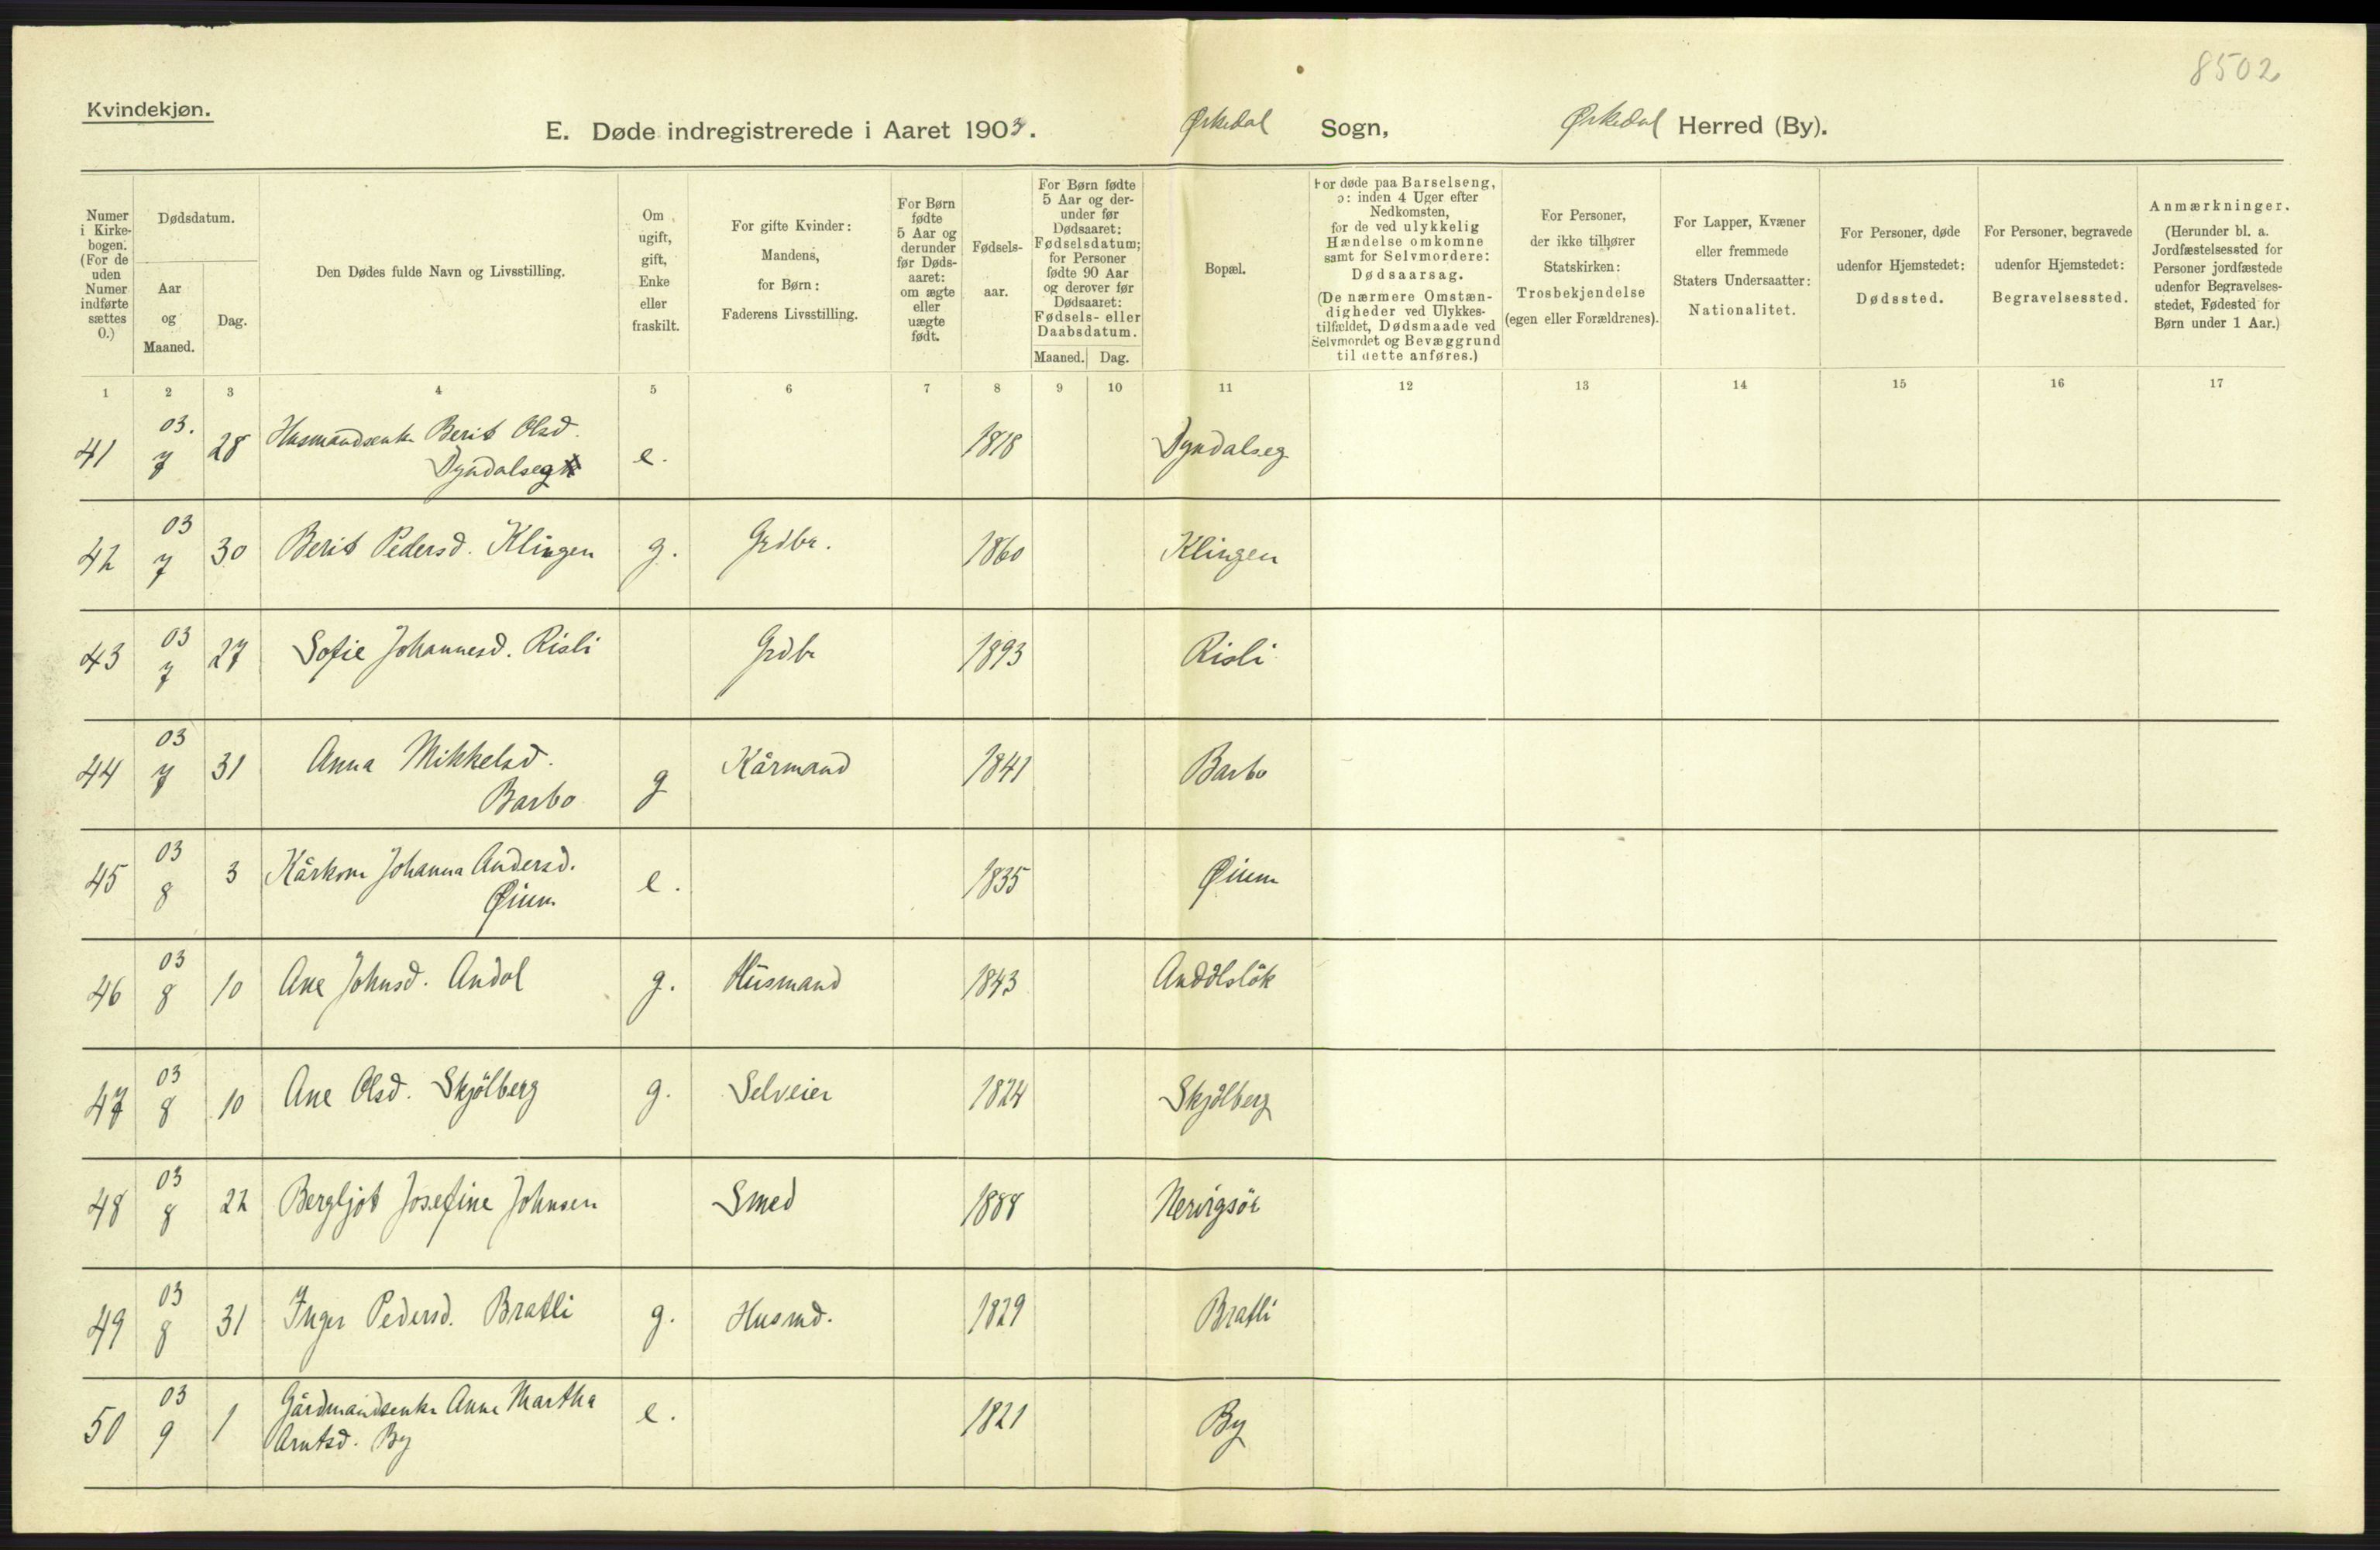 8502
Kvindekjøn.
E. Døde indregistrerede i Aaret 1903. Ørkedal Sogn, Ørkedal Herred (By).
Numer i Kirke-bogen. (For de uden Numer indførte sættes 0.)
Dødsdatum.
Aar og Maaned.
Dag.
Den Dødes fulde Navn og Livsstilling.
Om ugift, gift, Enke eller fraskilt.
For gifte Kvinder: Mandens, for Børn: Faderens Livsstilling.
For Børn fødte 5 Aar og derunder før Døds-aaret: om ægte eller uægte født.
Fødsels-aar.
For Børn fødte 5 Aar og der-under før Dødsaaret: Fødselsdatum; for Personer fødte 90 Aar og derover før Dødsaaret: Fødsels- eller Daabsdatum.
Maaned. Dag.
Bopæl.
For døde paa Barselseng, ɔ: inden 4 Uger efter Nedkomsten, for de ved ulykkelig Hændelse omkomne samt for Selvmordere: Dødsaarsag. (De nærmere Omstæn-digheder ved Ulykkes-tilfældet, Dødsmaade ved Selvmordet og Bevæggrund til dette anføres.)
For Personer, der ikke tilhører Statskirken: Trosbekjendelse (egen eller Forældrenes).
For Lapper, Kvæner eller fremmede Staters Undersaatter: Nationalitet.
For Personer, døde udenfor Hjemstedet: Dødssted.
For Personer, begravede udenfor Hjemstedet: Begravelsessted.
Anmærkninger. (Herunder bl. a. Jordfæstelsessted for Personer jordfæstede udenfor Begravelses-stedet, Fødested for Børn under 1 Aar.)
1 2 3 4 5 6 7 8 9 10 11 12 13 14 15 16 17
41 03. 7 28 Husmandsenke Berit Olsd. Dyndalseg e. 1818 Dyndalseg
42 03 7 30 Berit Pedersd. Klingen g. Grdbr. 1860 Klingen
43 03 7 27 Sofie Johannesd. Risli Grdbr 1893 Risli
44 03 7 31 Anna Mikkelsd. Barbo g Kårmand 1841 Barbo
45 03 8 3 Kårkone Johanna Andersd. Øium e. 1835 Øium
46 03 8 10 Ane Johnsd. Andol g. Husmand 1843 Anddlslök
47 03 8 10 Ane Olsd. Skjölberg g. Selveier 1824 Skjölberg
48 03 8 22 Bergljot Josefine Johnsen Smed 1888 Nervigsör
49 03 8 31 Inger Pedersd. Bratli g. Husmd. 1829 Bratli
50 03 9 1 Gårdmandsenke Anne Martha Arntsd. By e. 1821 By